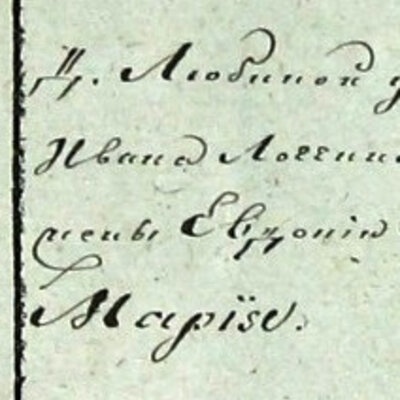 Д. Любиной
Ивана Логгин
жены Евдокіи
Марія.